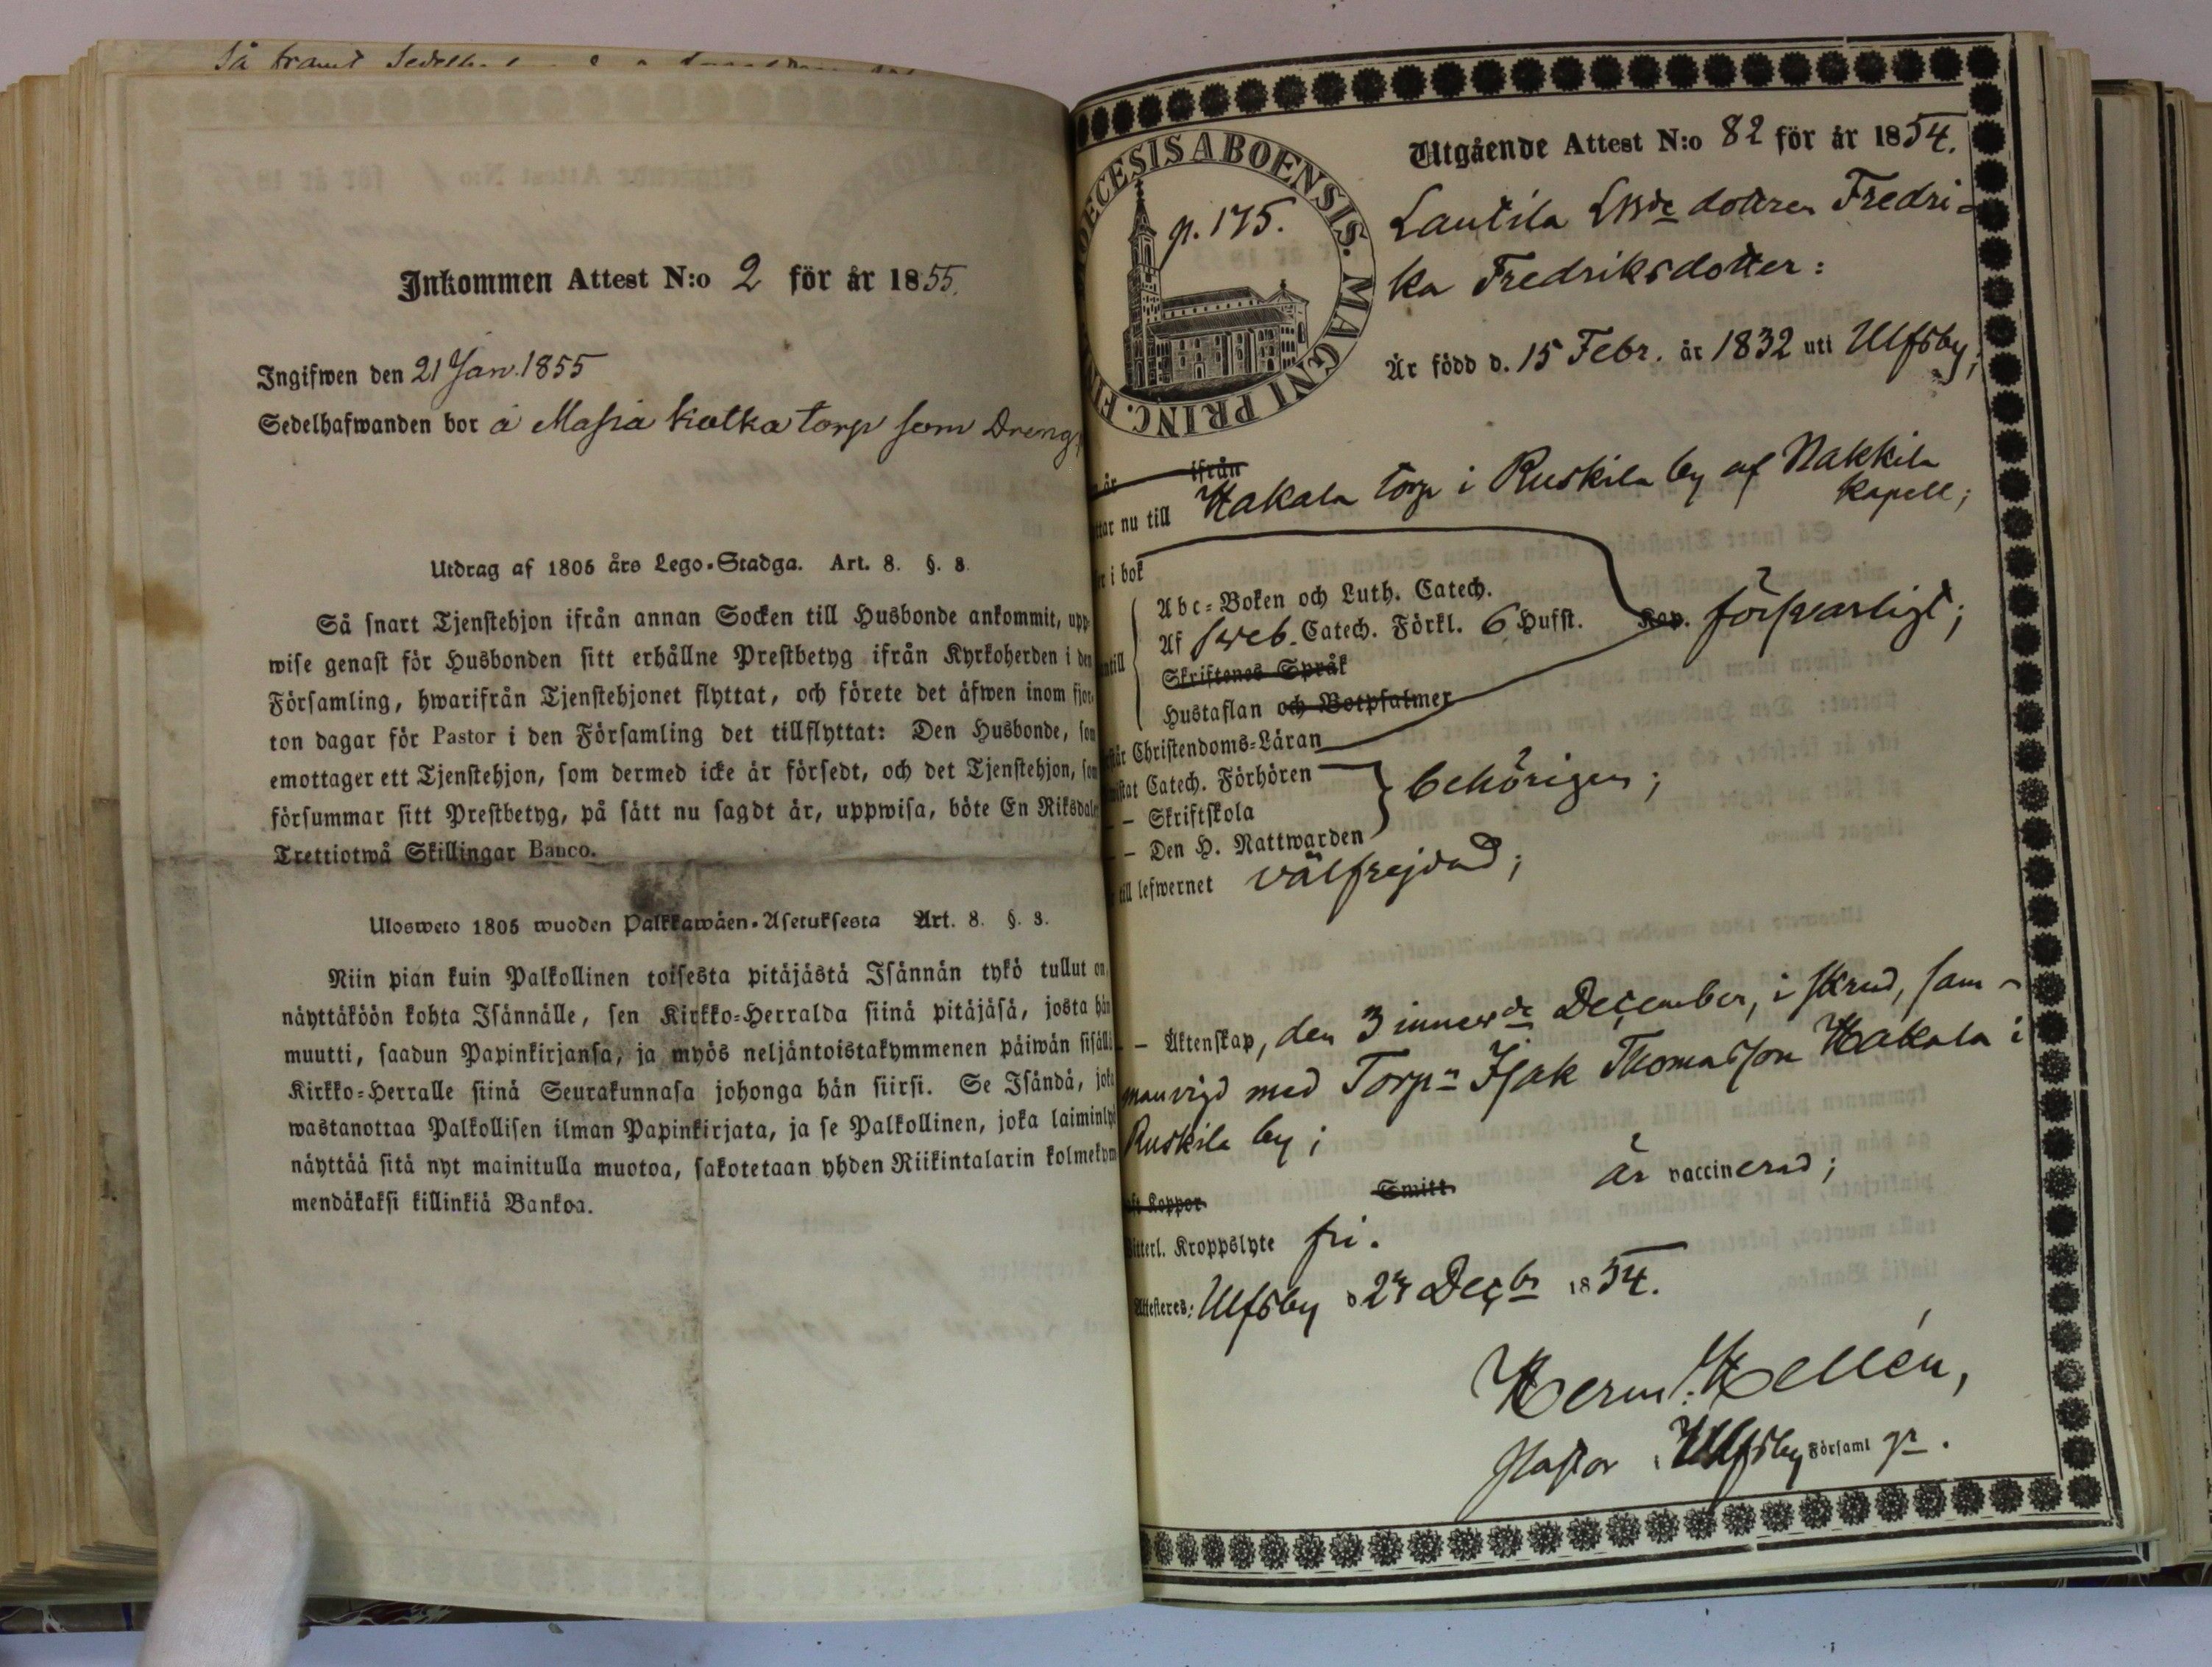 Så snart Sedelh
Inkommen Attest N:o 2 för år 1855.
Ingifwen den 21 Jan. 1855
Sedelhafwanden bor å Massia kolka torp som Dreng,
Utdrag af 1805 års Lego-Stadga. Art. 8. §. 8.
Så snart Tjenstehjon ifrån annan Socken till Husbonde ankommit, upp-
wise genast för Husbonden sitt erhållne Prestbetyg ifrån Kyrkoherden i den
Församling, hwarifrån Tjenstehjonet flyttat, och förete det äfwen inom fjor-
ton dagar för Pastor i den Församling det tillflyttat: Den Husbonde, som
emottager ett Tjenstehjon, som dermed icke är försedt, och det Tjenstehjon, som
försummar sitt Prestbetyg, på sätt nu sagdt är, uppwisa, böte En Riksdaler
Trettiotwå Skillingar Banco.
Ulosweto 1805 wuoden Palkkawäen-Asetuksesta Art. 8. §. 8.
Niin pian kuin Palkollinen toisesta pitäjästä Isännän tykö tullut on,
näyttäköön kohta Isännälle, sen Kirkko-Herralda siinä pitäjäsä, josta hän
muutti, saadun Papinkirjansa, ja myös neljäntoistakymmenen päiwän sisällä
Kirkko-Herralle siinä Seurakunnasa johonga hän siirsi. Se Isändä, joka
wastanottaa Palkollisen ilman Papinkirjata, ja se Palkollinen, joka laiminlyö
näyttää sitä nyt mainitulla muotoa, sakotetaan yhden Riikintalarin kolmekym-
mendäkaksi killinkiä Bankoa.
DIOECESIS ABOENSIS. MAGNI PRINC. FIN
p. 175.
Utgående Attest N:o 82 för år 1854.
Lautila Lbde dottren Fredri-
ka Fredriksdotter:
Är född d. 15 Febr. år 1832 uti Ulfsby;
är ifrån
ttar nu till Hakala torp i Ruskila by af Nakkila
kapell;
r i bok
Abc-Boken och Luth. Catech.
Af Sveb. Catech. Förkl. 6 Hufst. Kap. försvarligt;
antill
Skriftenes Språk
Hustaflan och Botpsalmer
står Christendoms-Läran
stat Catech. Förhören
behörigen;
– – Skriftskola
– – Den H. Nattwarden
till lefwernet välfrejdad;
– – Äktenskap, den 3 innewde December, i skrud, sam-
manvigd med Torpn Isak Thomasson Hakala i
Ruskila by;
aft Koppor Smitt är vaccinerad;
itterl. Kroppslyte fri.
Attesteres: Ulfsby d 27 Decbr 1854.
Herm. Hellén,
Pastor i Ulfsby Församl gr.